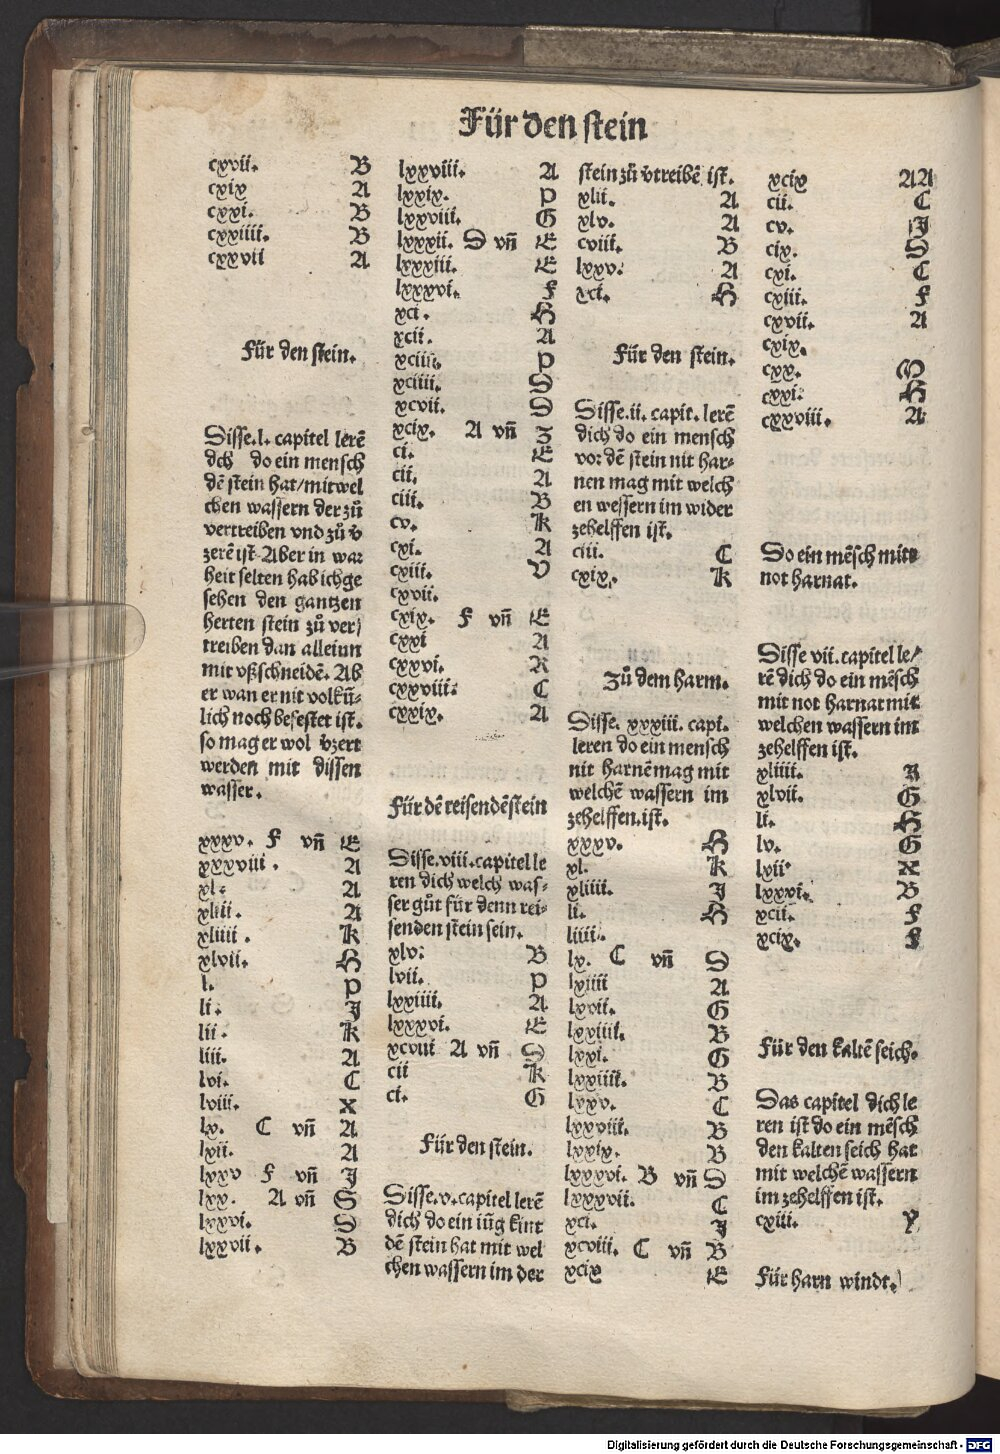 Für den stein
cxvii. B
cxix A
cxxi. B
cxxiiii. B
cxxvii A
Für den stein.
Disse.l. capitel lerẽ
dch do ein mensch
dẽ stein hat/mitwel
chen wassern der zů
vertreiben vnd zů v̄
zerẽ ist Aber in war
heit selten hab ichge
sehen den gantzen
herten stein zů ver/
treiben dan alleinn
mit vßschneidẽ. Ab
er wan er nit volkũ-
lich noch befestet ist.
so mag er wol v̄zert
werden mit dissen
wasser.
xxxv. F vñ E
xxxviii. A
xl. A
xliii. A
xliiii. K
xlvii. H
l. P
li. J
lii. K
liii. A
lvi. C
lviii. X
lx. C vñ A
lxii. A
lxxv F vñ J
lxx. A vñ S
lxxvi. D
lxxvii. B
lxxviii. A
lxxix. P
lxxviii. G
lxxxii. D vñ E
lxxxiii. E
lxxxvi. F
xci. H
xcii. A
xciii. P
xciiii. D
xcvii. D
xcix. A vñ Z
ci. E
cii. A
ciii. B
cv. K
cxi. A
cxiii. V
cxvii.
cxix. F vñ E
cxxi A
cxxvi. R
cxxviii. C
cxxix. A
Für dẽ reisendẽ stein
Disse.viii.capitel le
ren dich welch was-
ser gůt für denn rei-
senden stein sein.
xlv. B
lvii. P
lxxiiii. A
lxxxvi. E
xcviii A vñ D
cii K
ci. G
Für den stein.
Disse.v.capitel lerẽ
dich do ein iũg kint
dẽ stein hat mit wel
chen wassern im der
stein zů v̄treibẽ ist.
xlii. A
xlv. A
cviii. B
lxxv. A
xci. H
Für den stein.
Disse.ii. capit. lerẽ
dich do ein mensch
vor dẽ stein nit har-
nen mag mit welch
en wessern im wider
zehelffen ist.
ciii. C
cxix. K
Zů dem harm.
Disse. xxxiii. capi.
leren do ein mensch
nit harnẽ mag mit
welchẽ wassern im
zehelffen.ist.
xxxv. H
xl. K
xliiii. J
li. H
liiii.
lx. C vñ D
lxiiii A
lxvii. G
lxxiiii. B
lxxi. G
lxxiiii. B
lxxv. C
lxxviii. B
lxxix. B
lxxxvi. B vñ D
lxxxvii. C
xci. J
xcviii. C vñ B
xcix E
xcix AA
cii. C
cv. J
cix. D
cxi. C
cxiii. F
cxvii. A
cxix.
cxx. M
cxxi. H
cxxviii. A
So ein mẽsch mitt
not harnat.
Disse vii.capitel le/
rẽ dich do ein mẽsch
mit not harnat mit
welchen wassern im
zehelffen ist.
xliiii. R
xlvii. G
li. H
lv. G
lxii X
lxxxi. B
xcii. F
xcix. F
Für den kaltẽ seich.
Das capitel dich le
ren ist do ein mẽsch
den kalten seich hat
mit welchẽ wassern
im zehelffen ist.
cxiii. Y
Für harn windt.
Digitalisierung gefördert durch die Deutsche Forschungsgemeinschaft - DFG